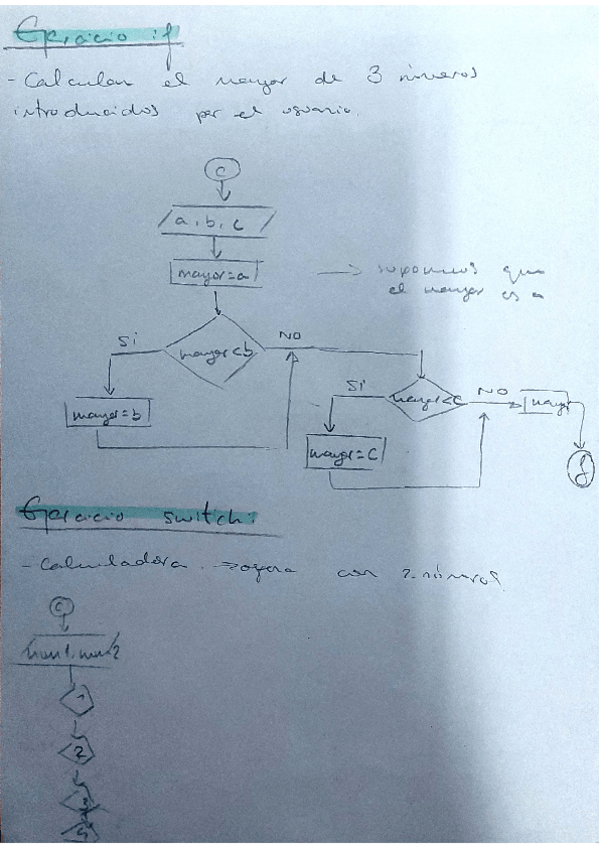 Ejercicio if
- Calcular el mayor de 3 números
introducidos por el usuario.
C
a, b, c
mayor=a → suponemos que
el mayor es a
mayor<b
SI
NO
mayor=b
mayor<c
SI
NO
mayor=c
mayor
f
Ejercicio switch:
- Calculadora → opera con 2 números
C
num1, num2
1
2